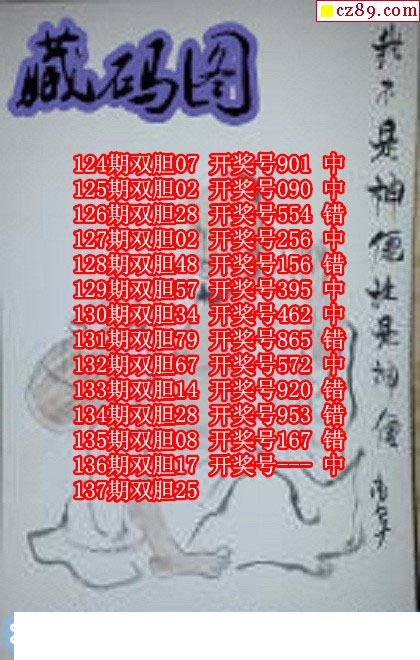 cz89.com
藏码图
我不是神便社是神便
124期双胆07 开奖号901 中
125期双胆02 开奖号090 中
126期双胆28 开奖号554 错
127期双胆02 开奖号256 中
128期双胆48 开奖号156 错
129期双胆57 开奖号395 中
130期双胆34 开奖号462 中
131期双胆79 开奖号865 错
132期双胆67 开奖号572 中
133期双胆14 开奖号920 错
134期双胆28 开奖号953 错
135期双胆08 开奖号167 错
136期双胆17 开奖号--- 中
137期双胆25